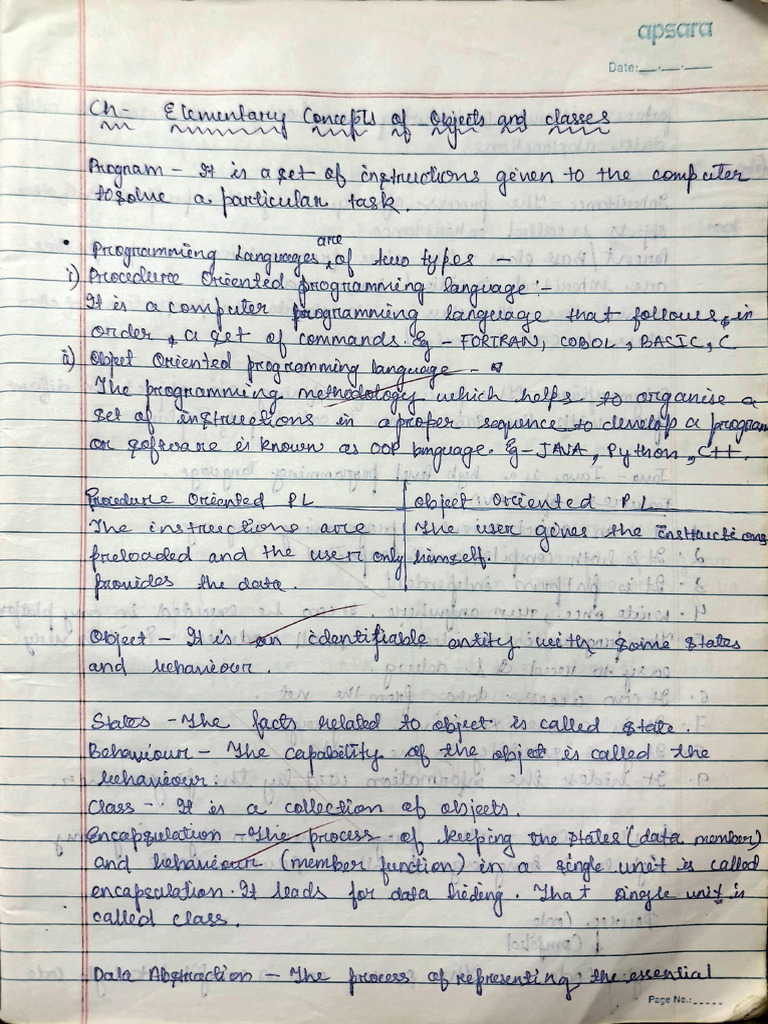 apsara
Date:__.__.__
Ch- Elementary Concepts of Objects and classes
Program - It is a set of instructions given to the computer
to solve a particular task.
• Programming languages are of two types -
i) Procedure Oriented programming language :-
It is a computer programming language that follows, in
order, a set of commands. Eg - FORTRAN, COBOL, BASIC, C
ii) Object Oriented programming language -
The programming methodology which helps to organise a
set of instructions in a proper sequence to develop a program
or software is known as OOP language. Eg - JAVA, Python, C++.
Procedure Oriented PL | Object Oriented PL
The instructions are | The user gives the instructions
preloaded and the user only | himself.
provides the data.
Object - It is an identifiable entity with some states
and behaviour.
States - The facts related to object is called state.
Behaviour - The capability of the object is called the
behaviour.
Class - It is a collection of objects.
Encapsulation - The process of keeping the states (data member)
and behaviour (member function) in a single unit is called
encapsulation. It leads for data hiding. That single unit is
called class.
Data Abstraction - The process of representing the essential
Page No.: